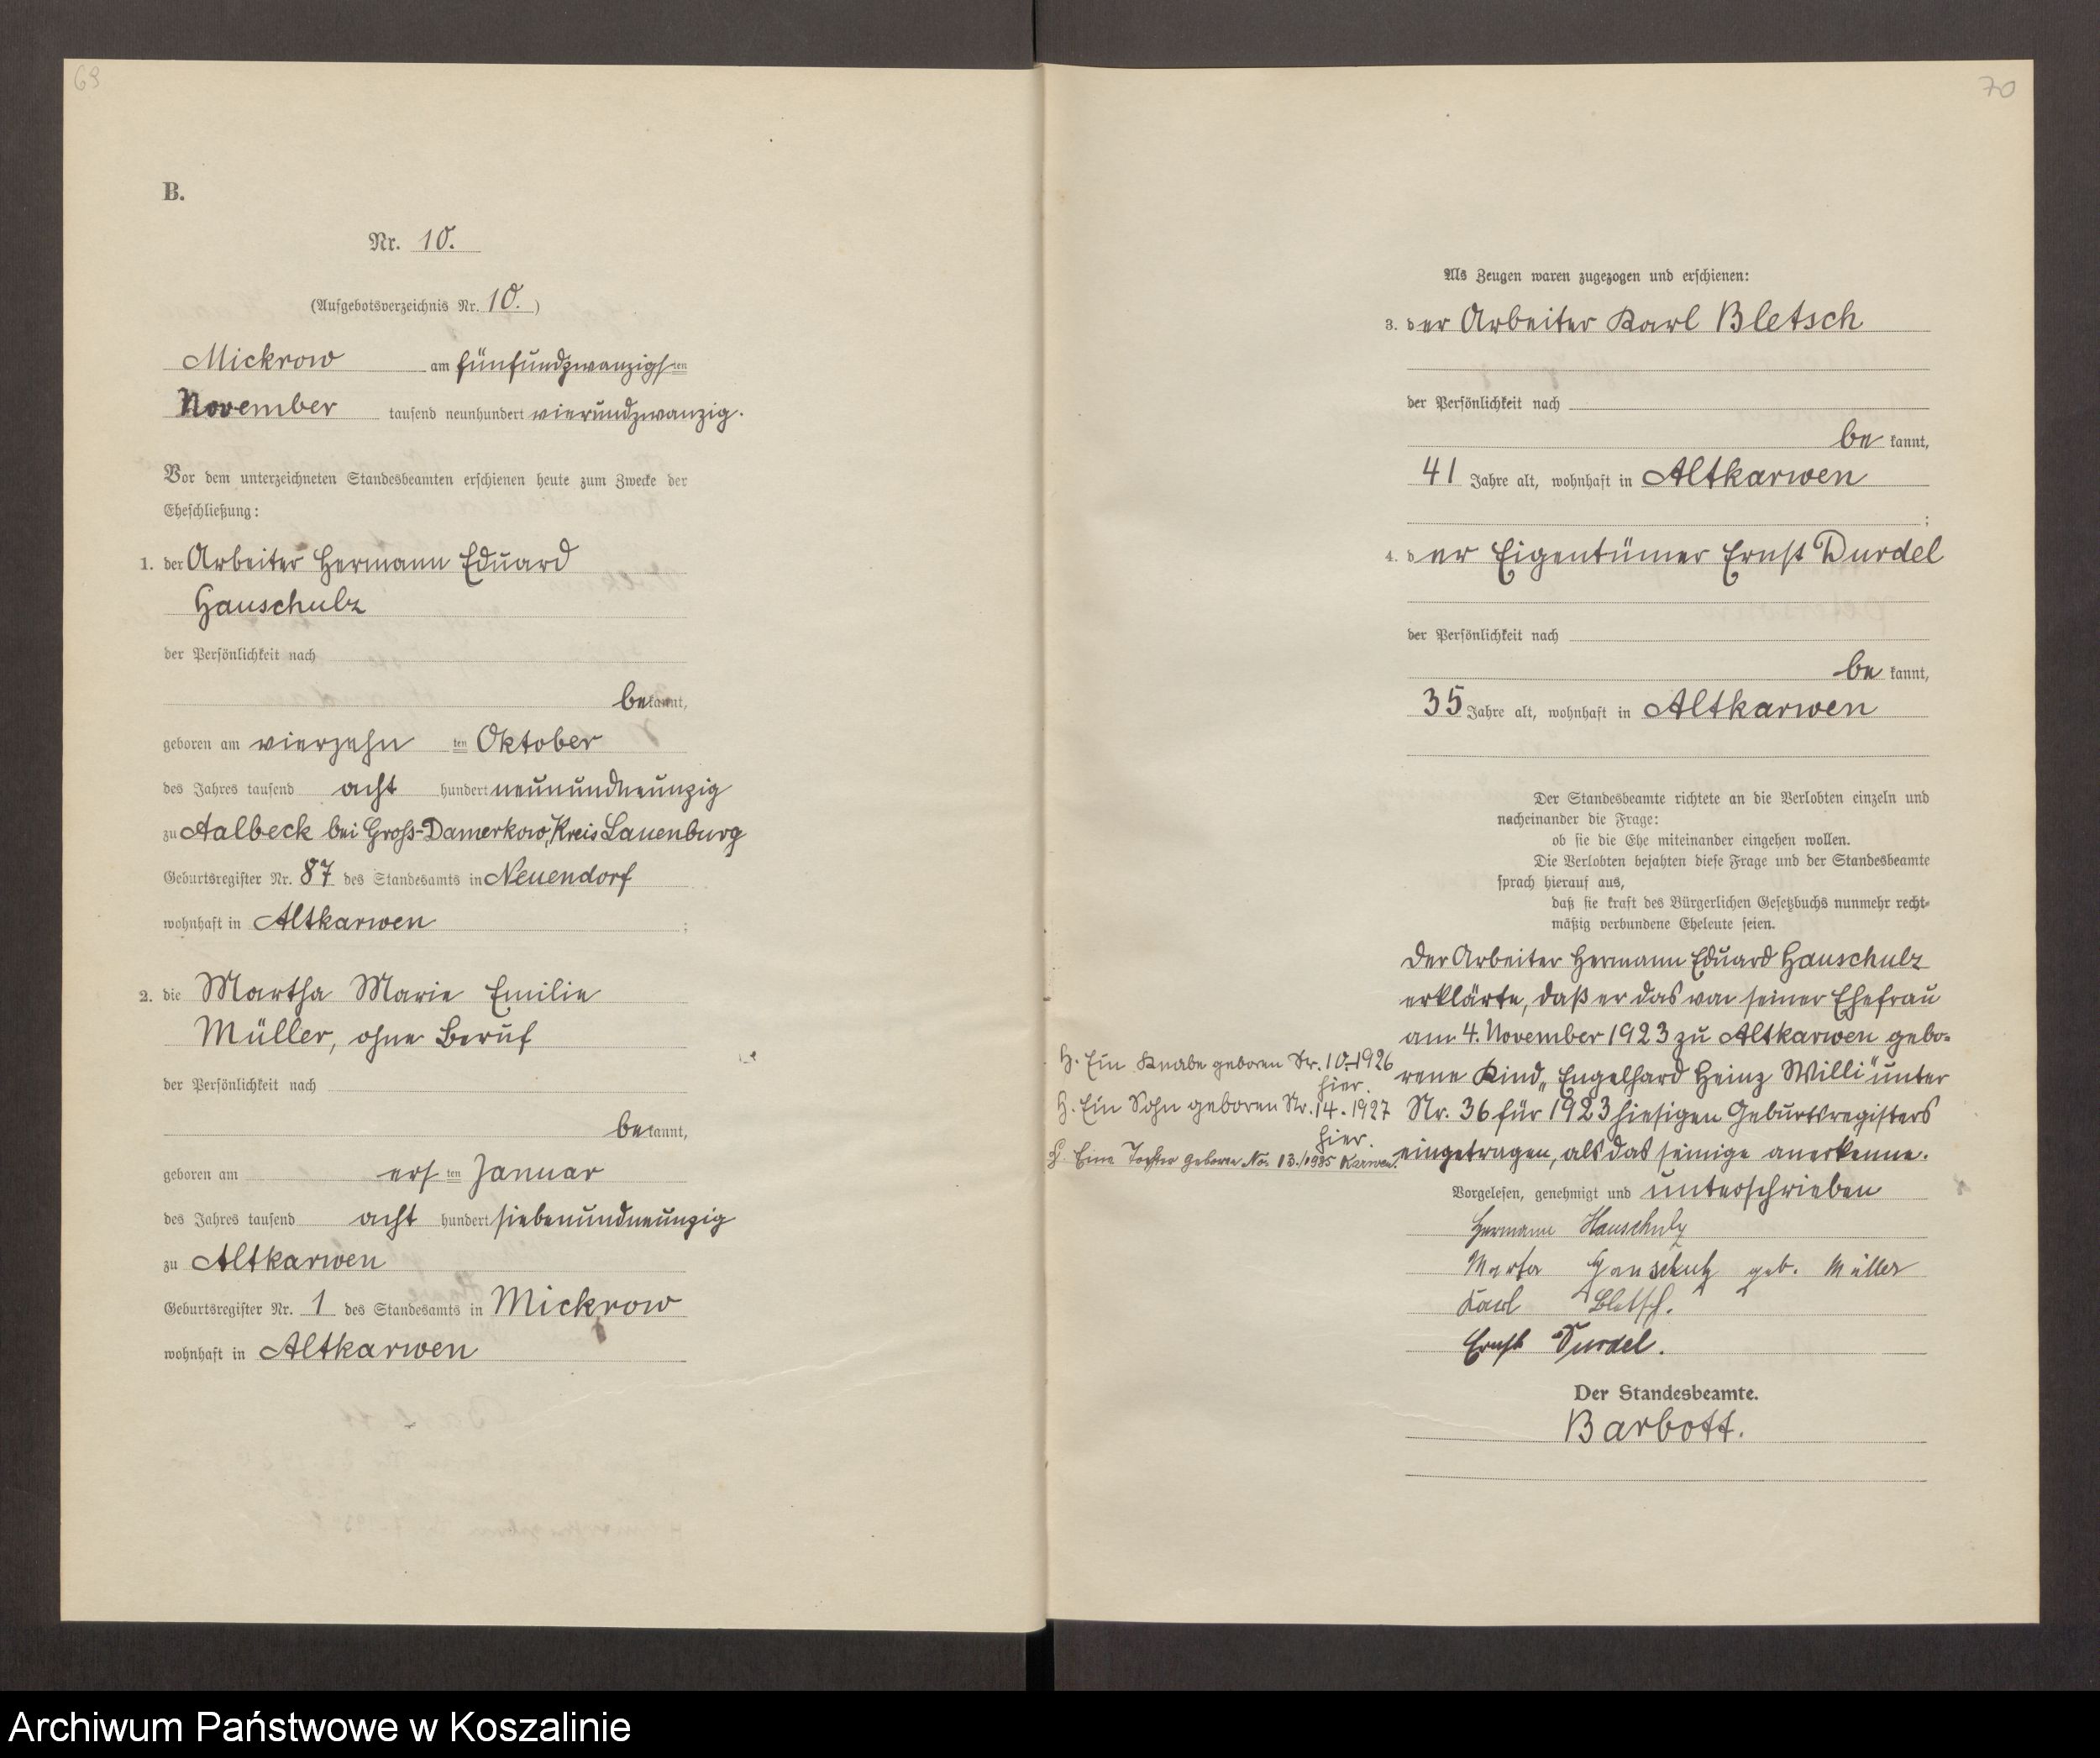 69
B.
Nr. 10.
(Aufgebotsverzeichnis Nr. 10.)
Mickrow am fünfundzwanzigsten
November tausend neunhundert vierundzwanzig.
Vor dem unterzeichneten Standesbeamten erschienen heute zum Zwecke der
Eheschließung:
1. der Arbeiter Hermann Eduard
Hauschulz
der Persönlichkeit nach
bekannt,
geboren am vierzehn ten Oktober
des Jahres tausend acht hundert neunundneunzig
zu Aalbeck bei Gross-Damerkow, Kreis Lauenburg
Geburtsregister Nr. 87 des Standesamts in Neuendorf
wohnhaft in Altkarwen ;
2. die Martha Marie Emilie
Müller, ohne Beruf
der Persönlichkeit nach
bekannt,
geboren am ersten Januar
des Jahres tausend acht hundert siebenundneunzig
zu Altkarwen
Geburtsregister Nr. 1 des Standesamts in Mickrow
wohnhaft in Altkarwen
70
Als Zeugen waren zugezogen und erschienen:
3. der Arbeiter Karl Bletsch
der Persönlichkeit nach
bekannt,
41 Jahre alt, wohnhaft in Altkarwen
;
4. der Eigentümer Ernst Durdel
der Persönlichkeit nach
bekannt,
35 Jahre alt, wohnhaft in Altkarwen
Der Standesbeamte richtete an die Verlobten einzeln und
nacheinander die Frage:
ob sie die Ehe miteinander eingehen wollen.
Die Verlobten bejahten diese Frage und der Standesbeamte
sprach hierauf aus,
daß sie kraft des Bürgerlichen Gesetzbuchs nunmehr recht-
mäßig verbundene Eheleute seien.
Der Arbeiter Hermann Eduard Hauschulz
erklärte, daß er das von seiner Ehefrau
am 4. November 1923 zu Altkarwen gebo-
rene Kind „Engelhard Heinz Willi" unter
Nr. 36 für 1923 hiesigen Geburtsregisters
eingetragen, als das seinige anerkenne.
H. Ein Knabe geboren Nr. 10.1926
hier.
H. Ein Sohn geboren Nr. 14.1927
hier.
H. Eine Tochter geboren No. 13./1935 Karwen.
Vorgelesen, genehmigt und unterschrieben
Hermann Hauschulz
Marta Hauschulz geb. Müller
Karl Bletsch.
Ernst Durdel.
Der Standesbeamte.
Barbott.
Archiwum Państwowe w Koszalinie